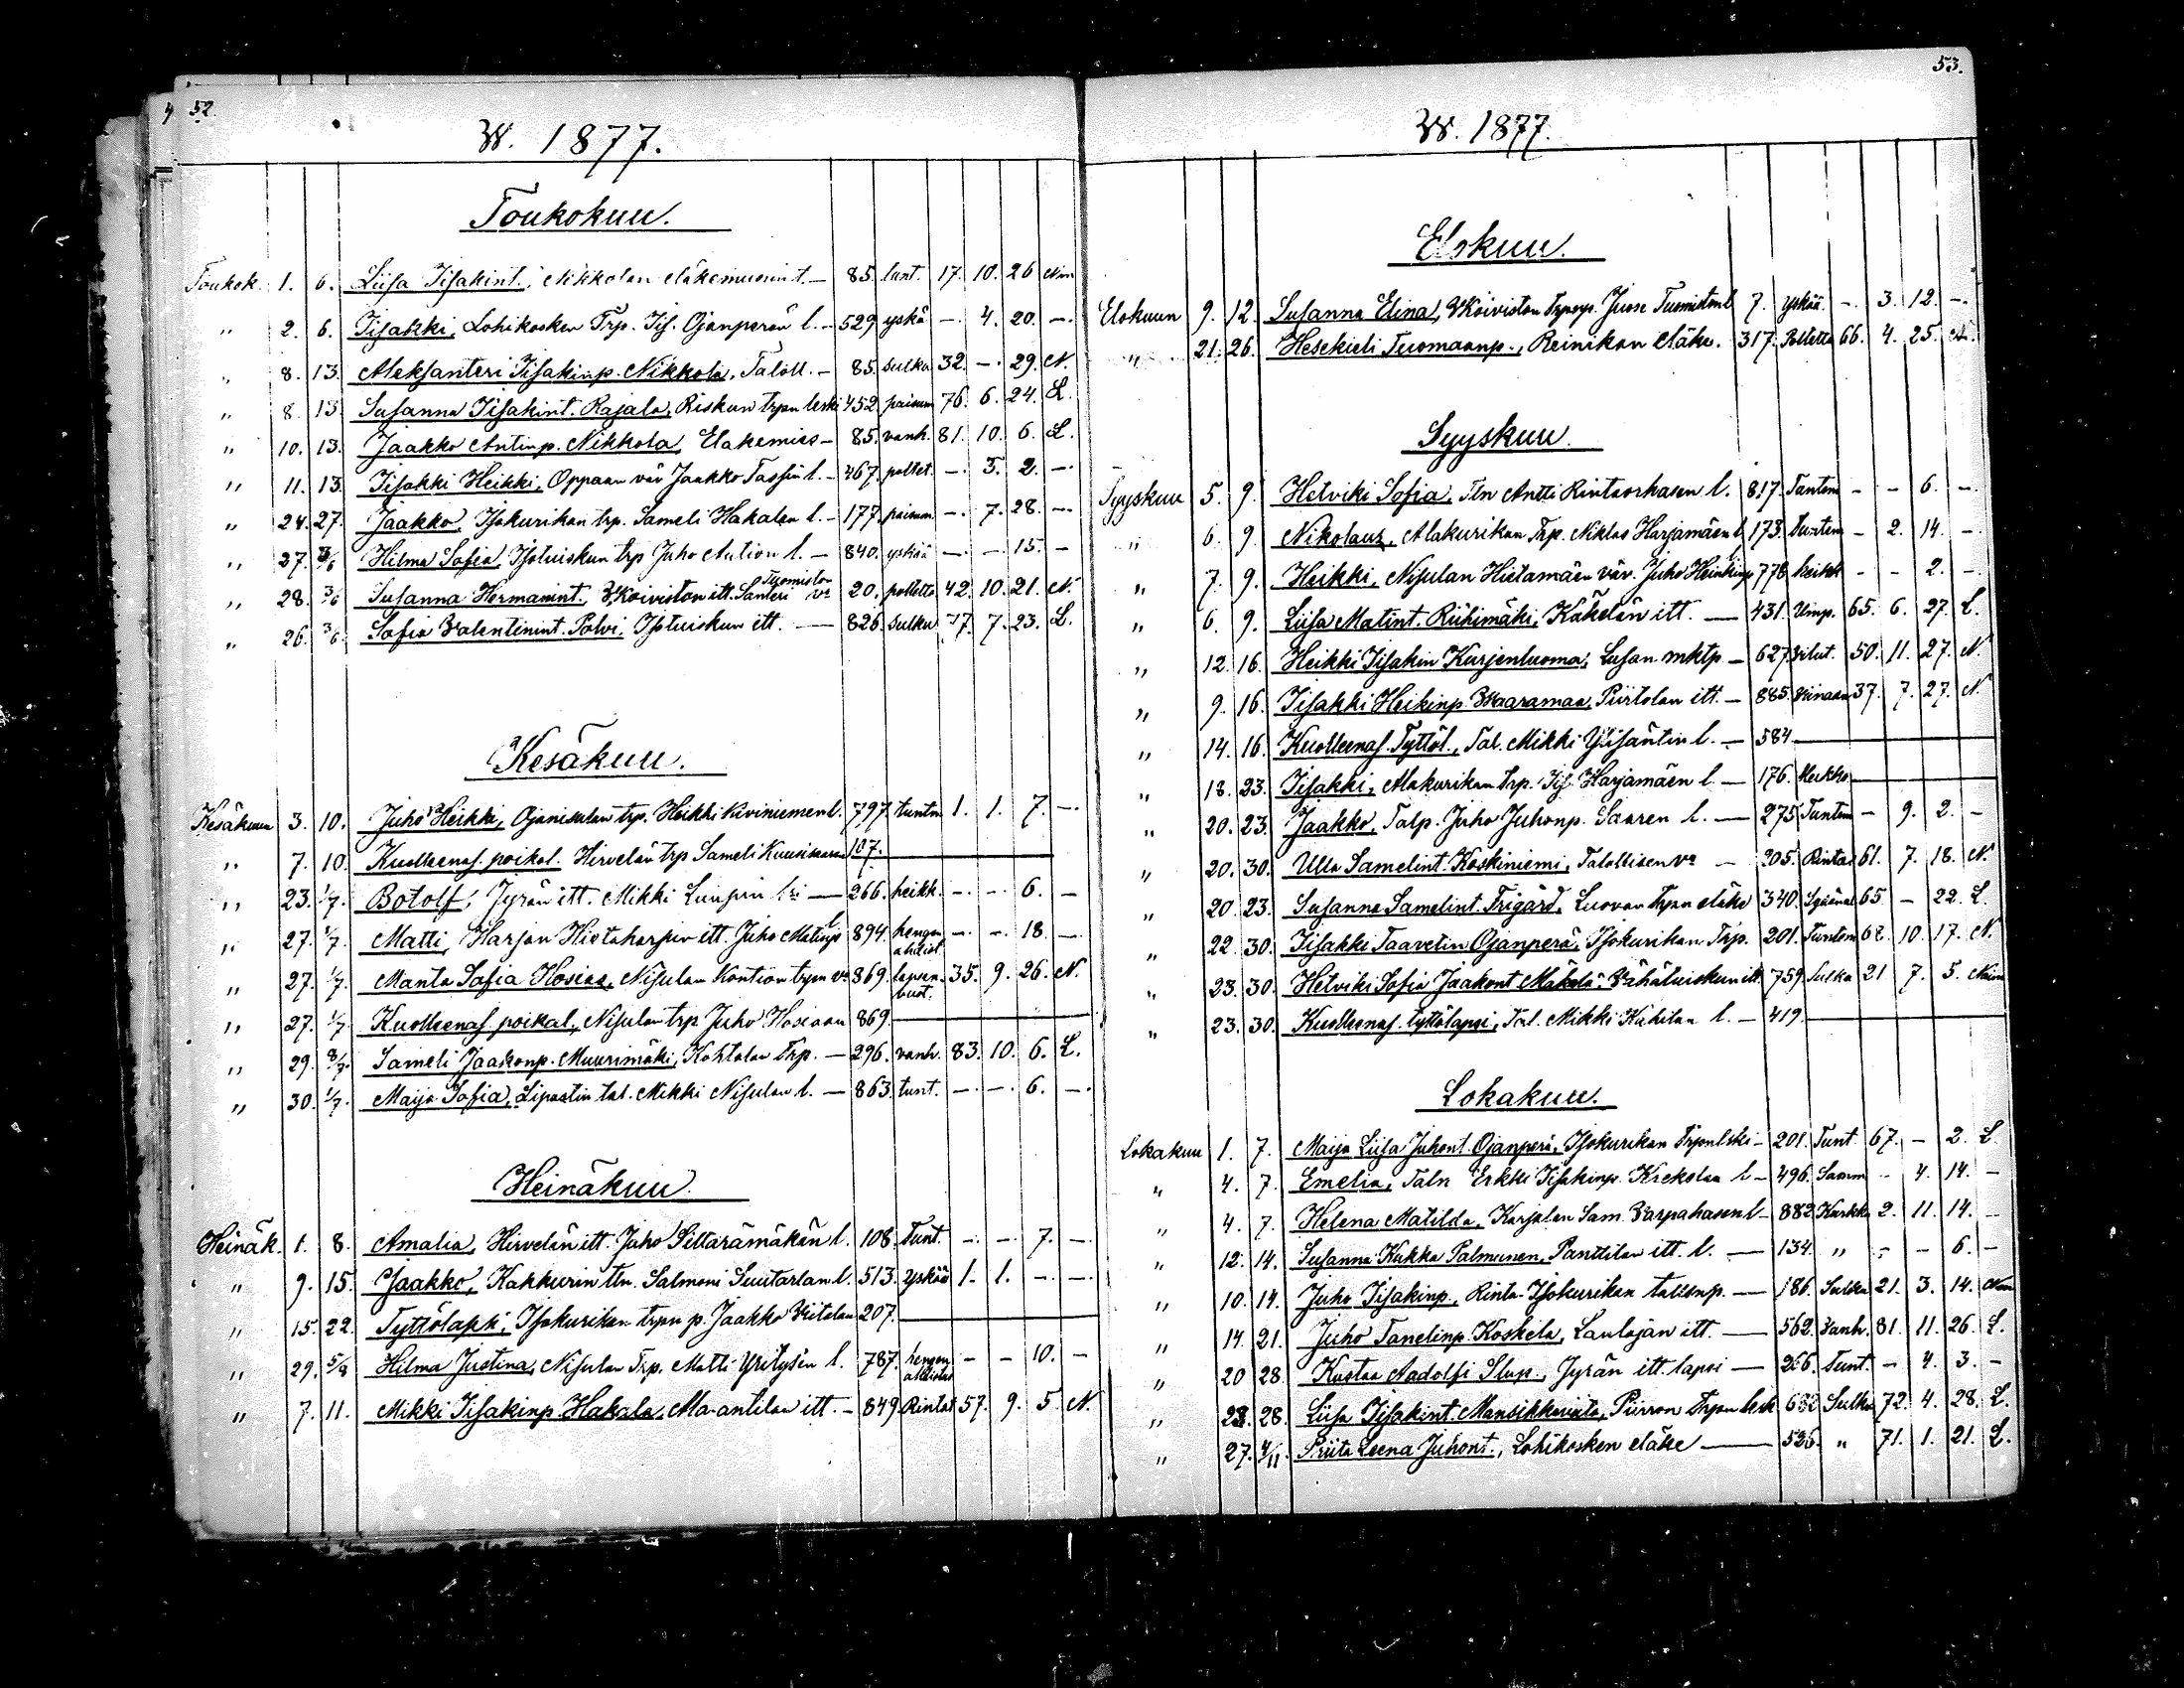 52.
W. 1877.
Toukokuu.
Toukok. 1. 6. Liisa Iisakint., Nikkolan eläkemuorin t. — 85. tunt. 17. 10. 26 Nm
„ 2. 6. Iisakki, Lohikosken Trp. Iis. Ojanperän l. — 529 yskä —. 4. 20. —.
„ 8. 13. Aleksanteri Iisakinp. Nikkola, Taloll. — 85. sulku 32. —. 29. N.
„ 8. 13. Susanna Iisakint. Rajala, Riskun trpn leski 452. paisum 76. 6. 24. L.
„ 10. 13. Jaakko Antinp. Nikkola, Eläkemies — 85. vanh. 81. 10. 6. L.
„ 11. 13. Iisakki Heikki, Oppaan väv Jaakko Tassin l. — 467. poltet. —. 3. 2. —.
„ 24. 27. Jaakko, Isokurikan trp. Sameli Hakalan l. — 177. paisum. —. 7. 28. —.
„ 27. 3/6 Hilma Sofia, Isoluiskun trp Juho Aution l. — 840. yskää —. —. 15. —
„ 28. 3/6 Susanna Hermanint. W.Koiviston itt. Santeri Tuomiston vo 20. polletta 42. 10. 21. N.
„ 26. 3/6. Sofia Valentinint. Polvi, Isoluiskun itt. — 826. sulku 77. 7. 23. L.
Kesäkuu.
Kesäkuun 3. 10. Juho Heikki, Ojanisulan trp. Heikki Kiviniemen l. 797. tuntm 1. 1. 7. —.
„ 7. 10. Kuolleenas. poikal. Hirvelän trp Sameli 127. —
„ 23. 1/7. Botolf, Jyrän itt. Mikki Luupin l. — 266. heikk. —. —. 6. —
„ 27. 1/7. Matti, Harjan Hietaharjun itt. Juho Matinp l 894. hengen ahdist. —. —. 18. —.
„ 27. 1/7. Manta Sofia Hosiaa, Nisulan Kontion trpn vo 869. lapsen- vuot. 35. 9. 26. N.
„ 27. 1/7. Kuolleenas. poikal., Nisulan trp Juho Hosiaan 869. —
„ 29. 8/7. Sameli Jaakonp. Muurimäki, Kohtalan Trp. — 296. vanh. 83. 10. 6. L.
„ 30. 1/7. Maija Sofia, Lipastin tal. Mikki Nisulan l. — 863. tunt. —. —. 6. —.
Heinäkuu.
Heinäk. 1. 8. Amalia, Hirvelän itt. Juho Siltarämäkän l. 108. Tunt. —. —. 7. —.
„ 9. 15. Jaakko, Kakkurin tln. Salmoni Suutarlan l. 513. yskää 1. 1. —. —.
„ 15. 22. Tyttölapsi, Isokurikan trpn p. Jaakko Viitalan 207. —
„ 29. 5/8 Hilma Justina, Nisulan Trp. Matti Yritysen l. 787. hengen ahdistus — — 10. —
„ 7. 11. Mikki Iisakinp. Hakala, Ma-antilan itt. — 849. Rintat 57. 9. 5. N.
53.
W. 1877.
Elokuu.
Elokuun 9. 12. Susanna Elina, W.Koiviston Jusse Tuomiston l 7. yskää. —. 3. 12. —.
„ 21. 26. Hesekieli Tuomaanp., Reinikan eläke. 317. Poltetta 66. 4. 25. N.
Syyskuu.
Syyskuu 5. 9. Hetviki Sofia, Tln Antti Rintaorhasen l. 817. Tuntem — — 6. —.
„ 6. 9. Nikolaus, Alakurikan Trp. Niklas Harjamäen l. 173. Tuntem — 2. 14. —.
„ 7. 9. Heikki, Nisulan Hietamäen väv. Juho Heikinp l. 778 heikk — — 2. —.
„ 6. 9. Liisa Matint. Riihimäki, Käkelän itt. — 431. Ump. 65. 6. 27. L.
„ 12. 16. Heikki Iisakin Kurjenluoma, Lusan mktp — 627. Vilut. 50. 11. 27. N.
„ 9. 16. Iisakki Heikinp. Waaramaa, Piirtolan itt. — 885. Viinaan 37. 7. 27. N.
„ 14. 16. Kuolleenas. Tyttöl., Tal. Mikki Ylisäntin l. — 584 —
„ 18. 23. Iisakki, Alakurikan trp. Iis. Harjamäen l. — 176. Heikko —
„ 20. 23. Jaakko, Talp. Juho Juhonp. Saaren l. — 275 Tuntem — 9. 2. —
„ 20. 30. Ulla Samelint. Koskiniemi, Talollisen vo — 205. Rintas 61. 7. 18. N.
„ 20. 23. Susanna Samelint. Frigård, Luovan trpn eläke 340. 65. — 22. L.
„ 22. 30. Iisakki Taavetin Ojanperä, Isokurikan Trp. 201. Tuntem 68. 10. 17. N.
„ 23. 30. Hetviki Sofia Jaakont Mäkelä, Vähäluiskun itt 759. Sulku 21 7. 5. Naim
„ 23. 30. Kuolleenas. tyttölapsi, Tal. Mikki Kuhilan l. — 419. —
Lokakuu.
Lokakuu 1. 7. Maija Liisa Juhont. Ojanperä, Isokurikan Trpn lski — 201. Tunt. 67. — 2. L
„ 4. 7. Emelia, Taln Erkki Iisakinp. Krekolan l — 496. — 4. 14. —
„ 4. 7. Helena Matilda, Karjalan Sam. Varpahasen l — 882. Kurkku 2. 11. 14. —
„ 12. 14. Susanna Kukka Palmunen, Panttilan itt. l. — 134. „ — — 6. —
„ 10. 14. Juho Iisakinp., Rinta-Isokurikan talllnp. — 186. Sulku 21. 3. 14. Nm
„ 14. 21. Juho Tanelinp. Koskela, Laulajan itt. — 562. Vanh. 81. 11. 26. L.
„ 20 28. Kustaa Aadolfi Slup., Jyrän itt. lapsi — 266. Tunt. — 4. 3. —
„ 28. 28. Liisa Iisakint. Mansikkaviita, Piirron Trpn lesk 682 Sulku 72. 4. 28. L.
„ 27. 4/11. Priita Leena Juhont., Lohikosken eläke — 526. „ 71. 1. 21. L.